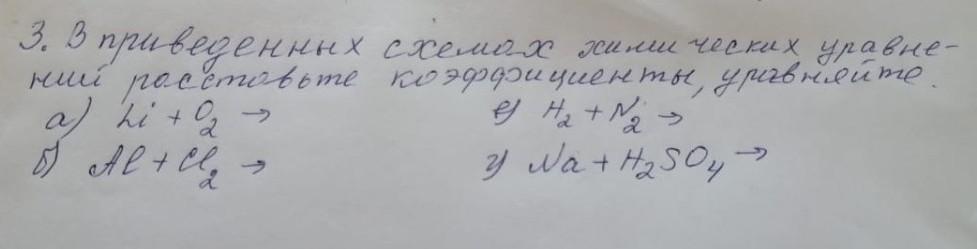 3. В приведенных схемах химических уравне-
ний расставьте коэффициенты, уравняйте.
а) Li + O₂ →
б) Al + Cl₂ →
в) H₂ + N₂ →
г) Na + H₂SO₄ →